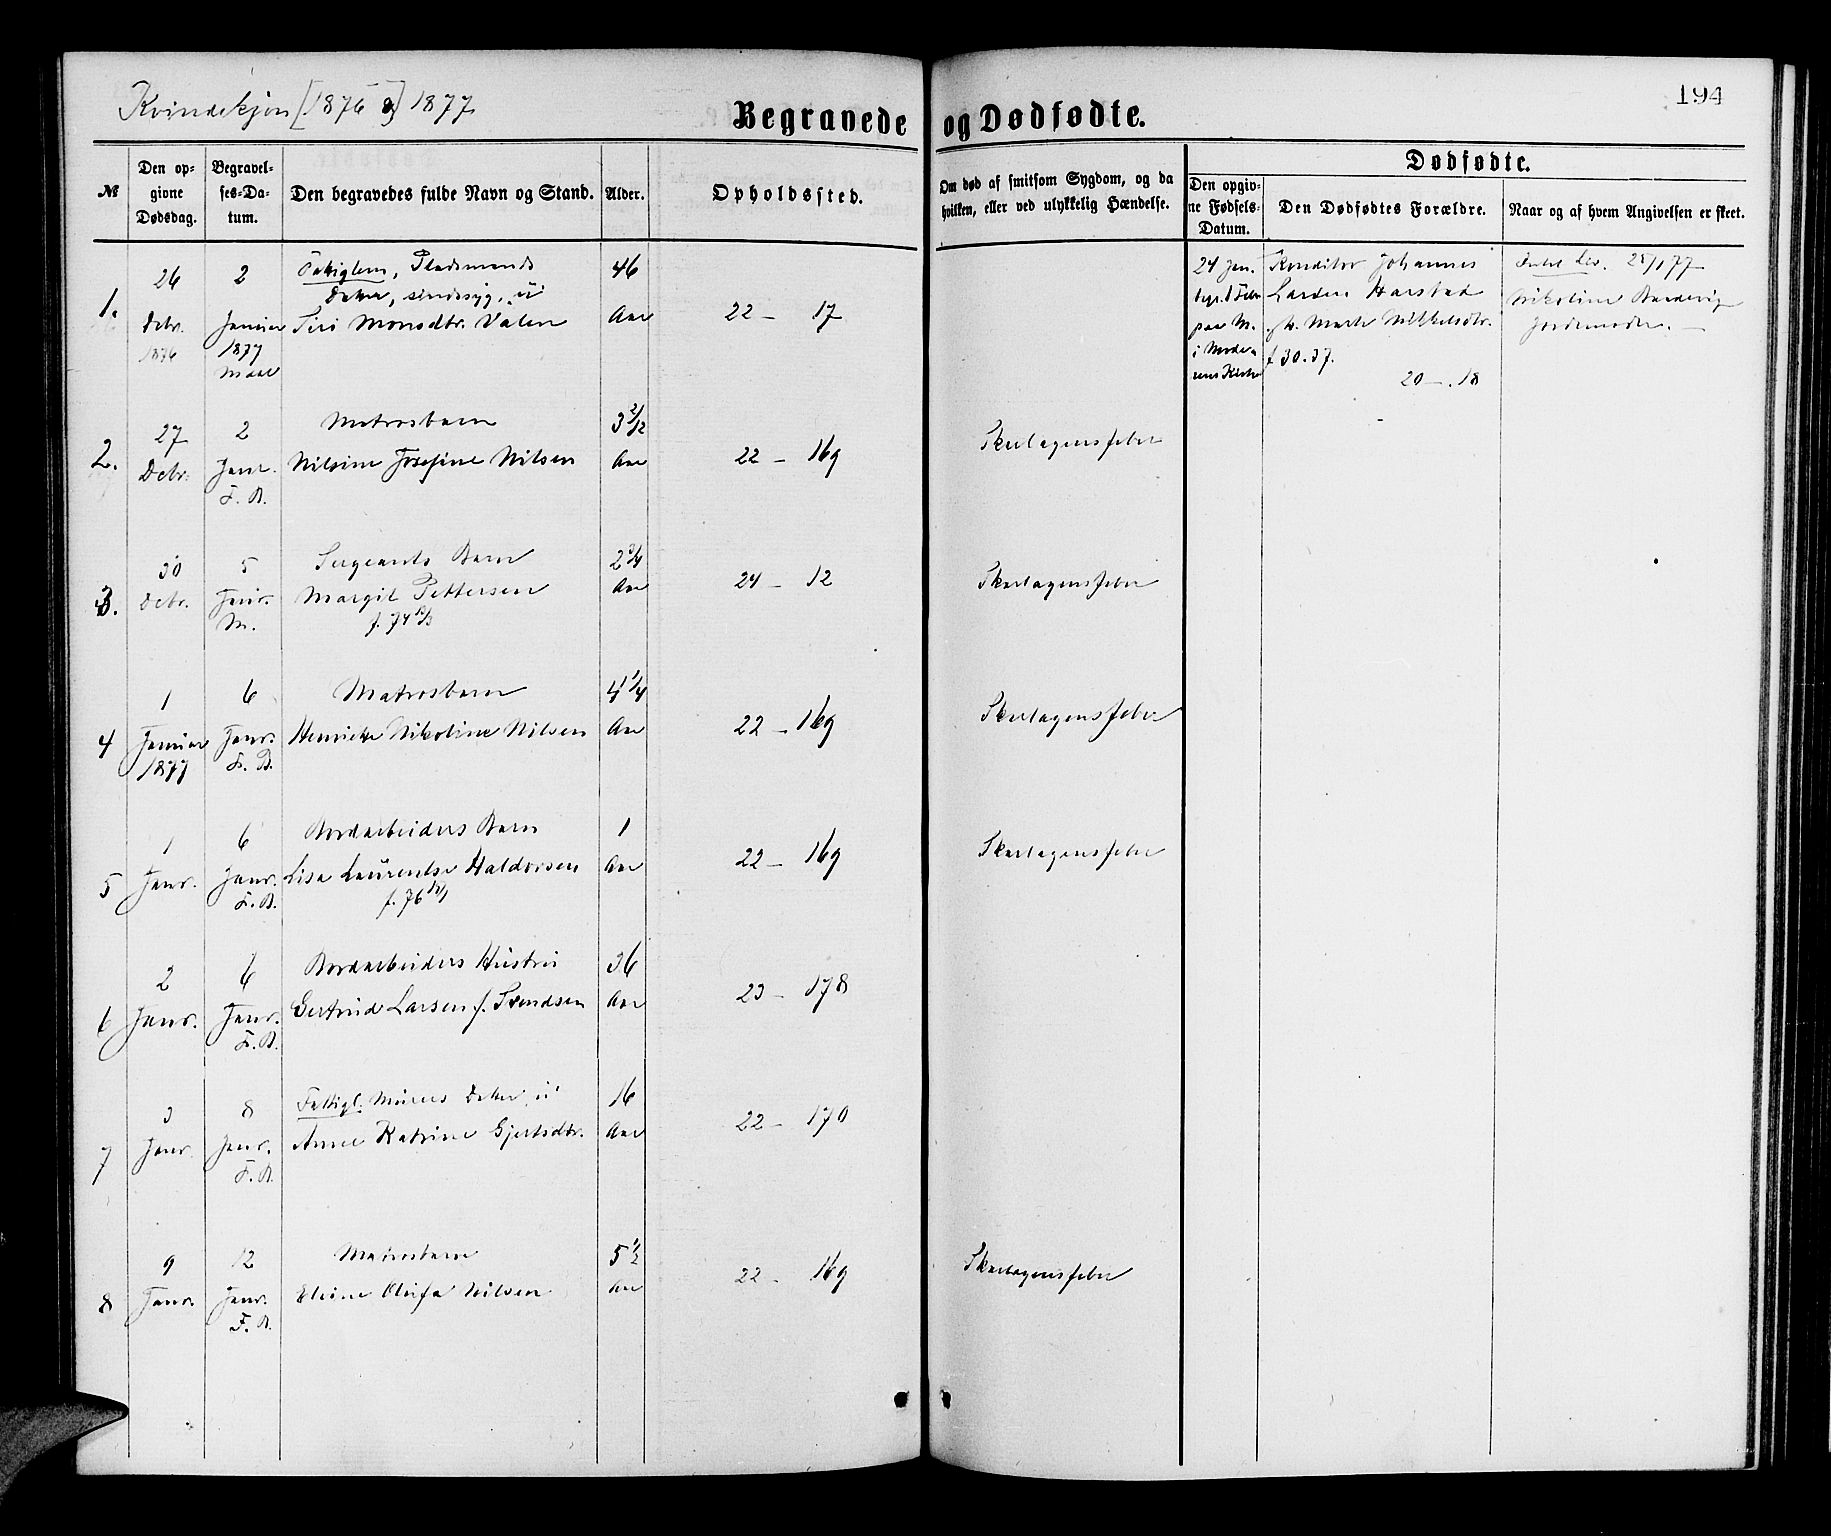 Kvindekjøn [1876 og] 1877
194
Begravede og Dødfødte.
№
Den op-
givne
Dødsdag.
Begravel-
ses-Da-
tum.
Den begravedes fulde Navn og Stand.
Alder.
Opholdssted.
Om død af smitsom Sygdom, og da
hvilken, eller ved ulykkelig Hændelse.
Dødfødte.
Den opgiv-
ne Fødsels-
Datum.
Den Dødfødtes Forældre.
Naar og af hvem Angivelsen er skeet.
1.
26
Debr.
1876
2
Januar
1877
Pladsmands
Datter, sindssyg, u
Siri Monsdtr. Valen
46
Aar
22 - 17
24 Jan.
Konditor Johannes
Larsen Harstad
f 30. 37.
20 - 18
28/1 77
Nikoline
Jordemoder.
2.
27
Debr.
2
Janr.
F. B.
Matrosbarn
Nilsine Josefine Nilsen
3 2/12
Aar
22 - 169
Skarlagensfeber
3.
30
Debr.
5
Janr.
M.
Sergeants Barn
Margit Pettersen
2 3/4
Aar
24 - 12
Skarlagensfeber
4
1
Januar
1877
6
Janr.
F. B.
Matrosbarn
Henrikke Nikoline Nilsen
4 1/4
Aar
22 - 169
Skarlagensfeber
5
1
Janr.
6
Janr.
F. B.
Bordarbeiders Barn
Lisa Laurentse Haldorsen
1
Aar
22 - 169
Skarlagensfeber
6
2
Janr.
6
Janr.
F. B.
Bordarbeiders Hustru
Gertrud Larsen f. Svendsen
36
Aar
23 - 178
7
3
Janr.
8
Janr.
F. B.
Fattigl. Murers Datter u
Anne Katrine Gjertsdtr.
16
Aar
22 - 170
8
9
Janr.
12
Janr.
F. B.
Matrosbarn
Elvine Olufa Nilsen
5 1/2
Aar
22 - 169
Skarlagensfeber